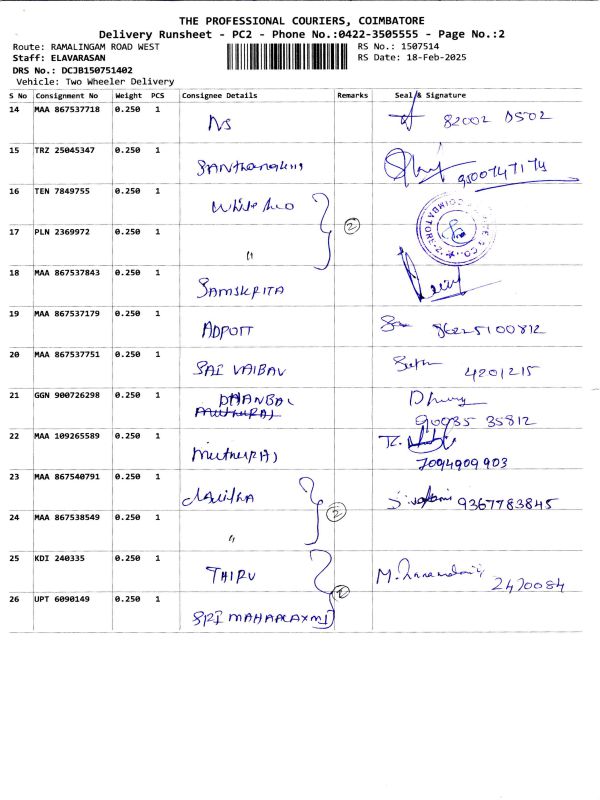 THE PROFESSIONAL COURIERS, COIMBATORE
Delivery Runsheet - PC2 - Phone No.:0422-3505555 - Page No.:2
Route: RAMALINGAM ROAD WEST
RS No.: 1507514
Staff: ELAVARASAN
RS Date: 18-Feb-2025
DRS No.: DCJB150751402
Vehicle: Two Wheeler Delivery
S No Consignment No Weight PCS Consignee Details Remarks Seal & Signature
14 MAA 867537718 0.250 1 NS 82002
15 TRZ 25045347 0.250 1 9500747174
16 TEN 7849755 0.250 1
17 PLN 2369972 0.250 1 " 2
18 MAA 867537843 0.250 1 SAMSKRITA
19 MAA 867537179 0.250 1
20 MAA 867537751 0.250 1 SAI VAIBAV 4201215
21 GGN 900726298 0.250 1 DHANBAL
90035 35812
22 MAA 109265589 0.250 1 MUTHURAJ
7094909903
23 MAA 867540791 0.250 1 9367783845
24 MAA 867538549 0.250 1 " 2
25 KDI 240335 0.250 1 THIRU 2470084
26 UPT 6090149 0.250 1 SRI MAHAALAXMI